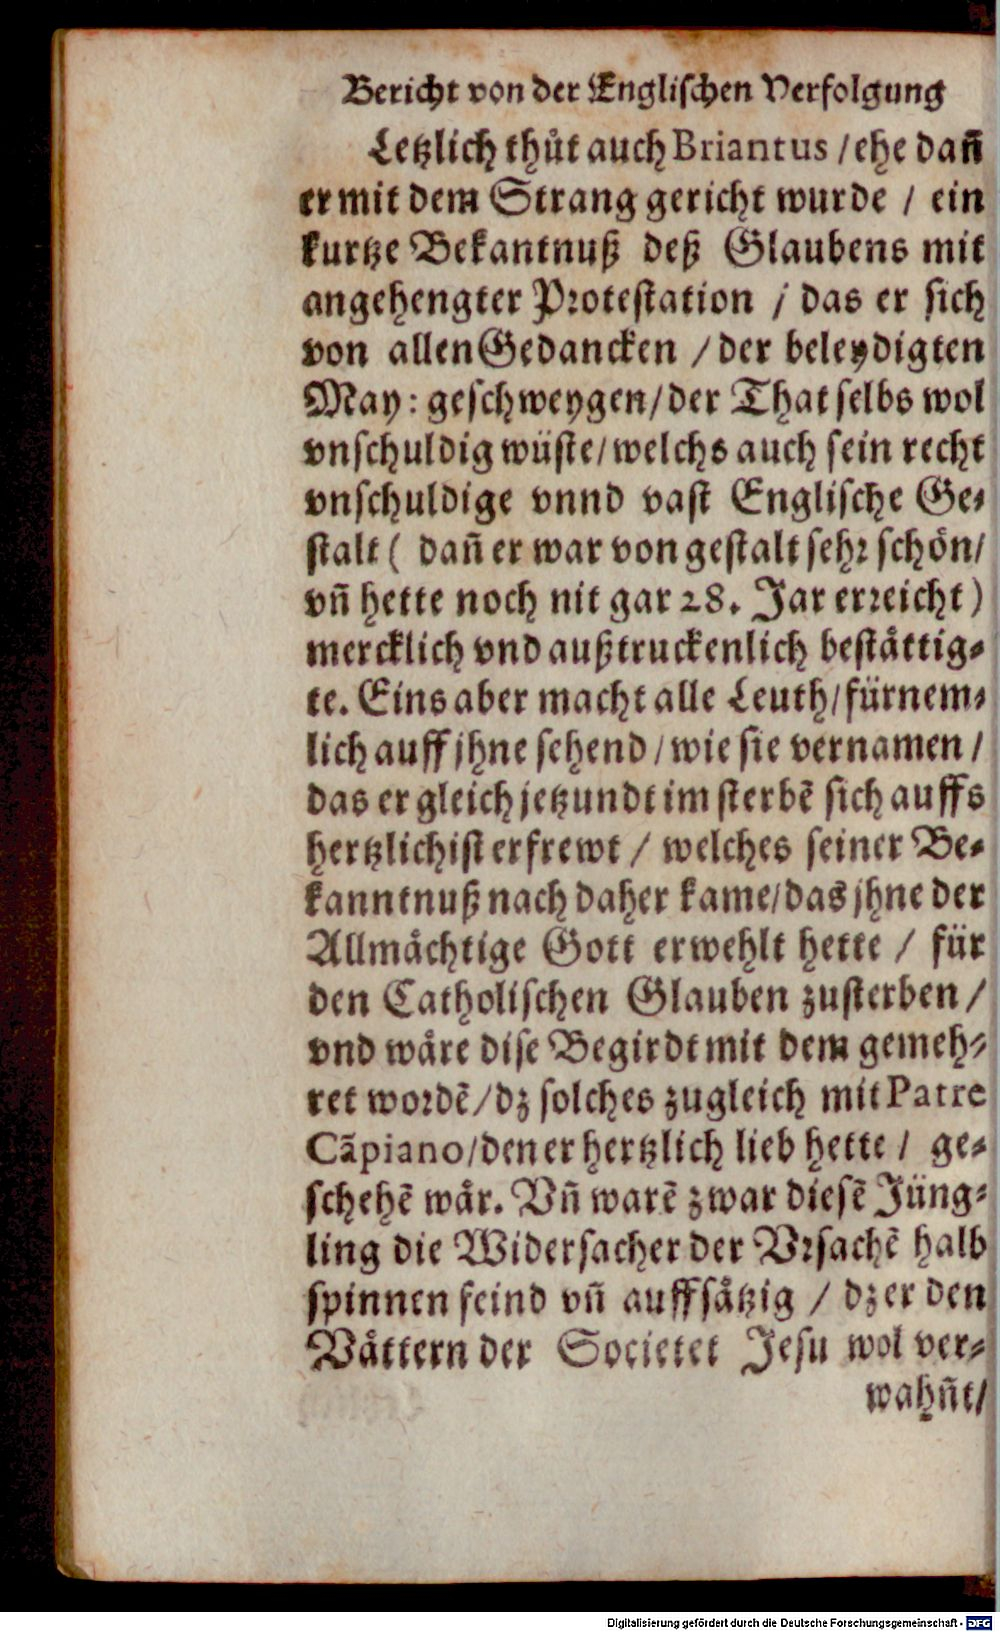 Bericht von der Englischen Verfolgung
Letzlich thůt auch Briantus / ehe dañ
er mit dem Strang gericht wurde / ein
kurtze Bekantnuß deß Glaubens mit
angehengter Protestation / das er sich
von allen Gedancken / der beleydigten
May: geschweygen / der That selbs wol
vnschuldig wüste / welchs auch sein recht
vnschuldige vnnd vast Englische Ge-
stalt ( dañ er war von gestalt sehr schön /
vñ hette noch nit gar 28. Jar erreicht )
mercklich vnd außtruckenlich bestättig-
te. Eins aber macht alle Leuth / fürnem-
lich auff jhne sehend / wie sie vernamen /
das er gleich jetzundt im sterbẽ sich auffs
hertzlichist erfrewt / welches seiner Be-
kanntnuß nach daher kame / das jhne der
Allmächtige Gott erwehlt hette / für
den Catholischen Glauben zusterben /
vnd wäre dise Begirdt mit dem gemeh-
ret wordẽ / dz solches zugleich mit Patre
Cãpiano / den er hertzlich lieb hette / ge-
schehẽ wär. Vñ warẽ zwar diesẽ Jüng-
ling die Widersacher der Vrsachẽ halb
spinnen feind vñ auffsätzig / dz er den
Vättern der Societet Jesu wol ver-
wahñt /
Digitalisierung gefördert durch die Deutsche Forschungsgemeinschaft - DFG